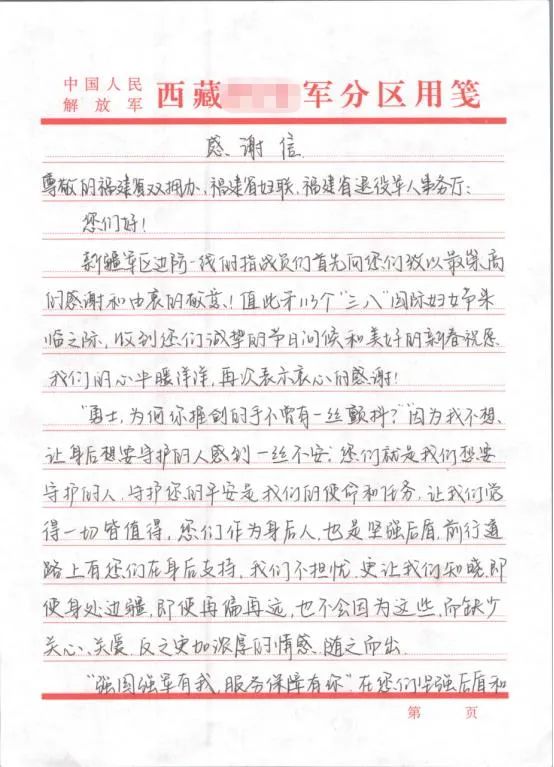 中国人民
解放军
西藏 军分区用笺
感谢信
尊敬的福建省双拥办、福建省妇联、福建省退役军人事务厅：
您们好！
新疆军区边防一线的指战员们首先向您们致以最崇高
的感谢和由衷的敬意！值此第113个“三八”国际妇女节来
临之际，收到您们诚挚的节日问候和美好的新春祝愿
我们的心中暖洋洋，再次表示衷心的感谢！
“勇士，为何你握剑的手不曾有一丝颤抖？”“因为我不想、
让身后想要守护的人感到一丝不安；您们就是我们想要
守护的人，守护您的平安是我们的使命和任务，让我们觉
得一切皆值得，您们作为身后人，也是坚强后盾，前行道
路上有您们在身后支持，我们不担忧，更让我们知晓，即
使身处边疆，即使再偏再远，也不会因为这些，而缺少
关心、关爱，反之更加浓厚的情感、随之而出
“强国强军有我，服务保障有你”在您们坚强后盾和
第 页